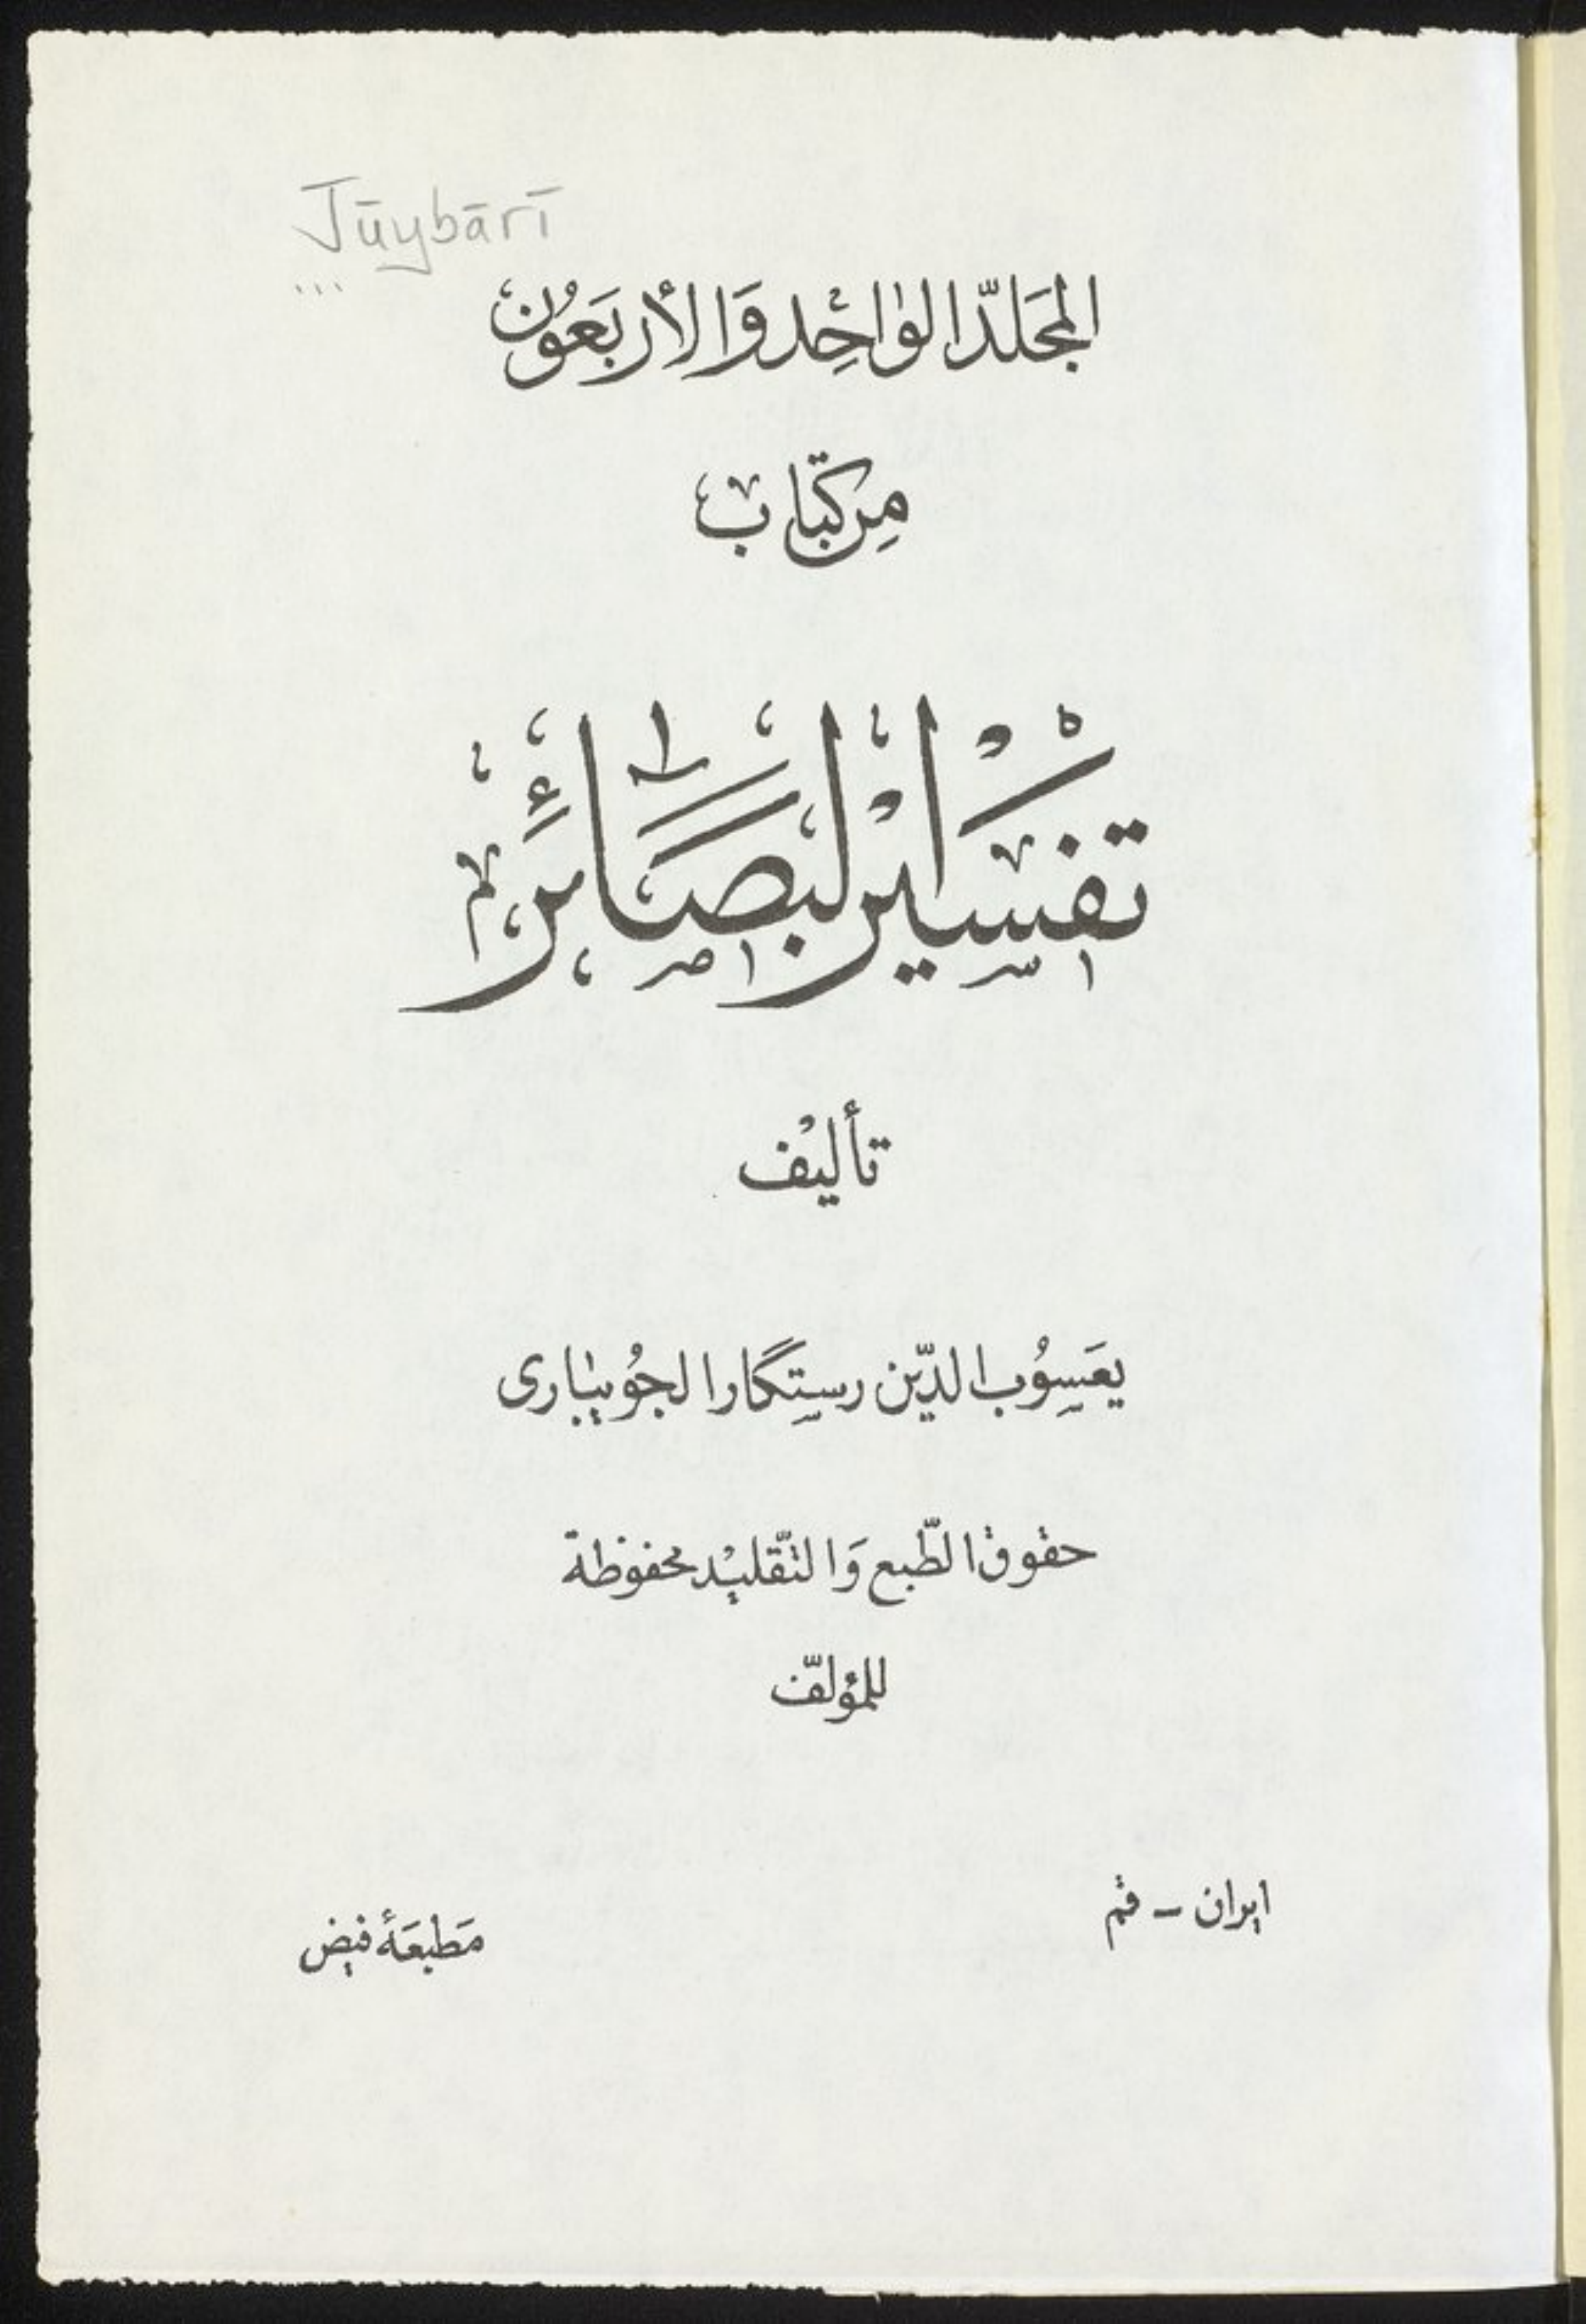 Jūybārī
المجَلدّ الوٰاحِد وَالأربَعوُن
مِن كتاب
تفسير البصَائر
تأليْف
يعَسوُب الدّين رستگار الجوُيبٰارى
حقوق الطّبع وَ التّقليْد محفوظة
للمؤلفّ
ايران – قم
مَطبعَهٔ فيض